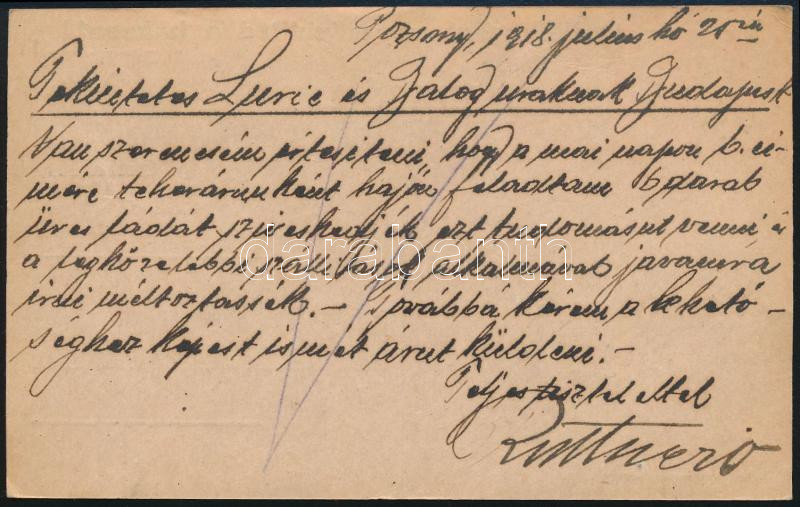 Pozsony, 1918. julius hó 20 án
Tekintetes Lurie és Balog uraknak Budapest
Van szerencsém értesiteni, hogy a mai napon b. ci-
mére teherárunként hajón feladtam 6 darab
üres ládát sziveskedjék ezt tudomásul venni és
a legközelebbi szállitásuk alkalmával javamra
irni méltóztassék. - Továbbá kérem a leható -
séghez képest ismét árut küldeni. -
Teljes tisztelettel
darabanth